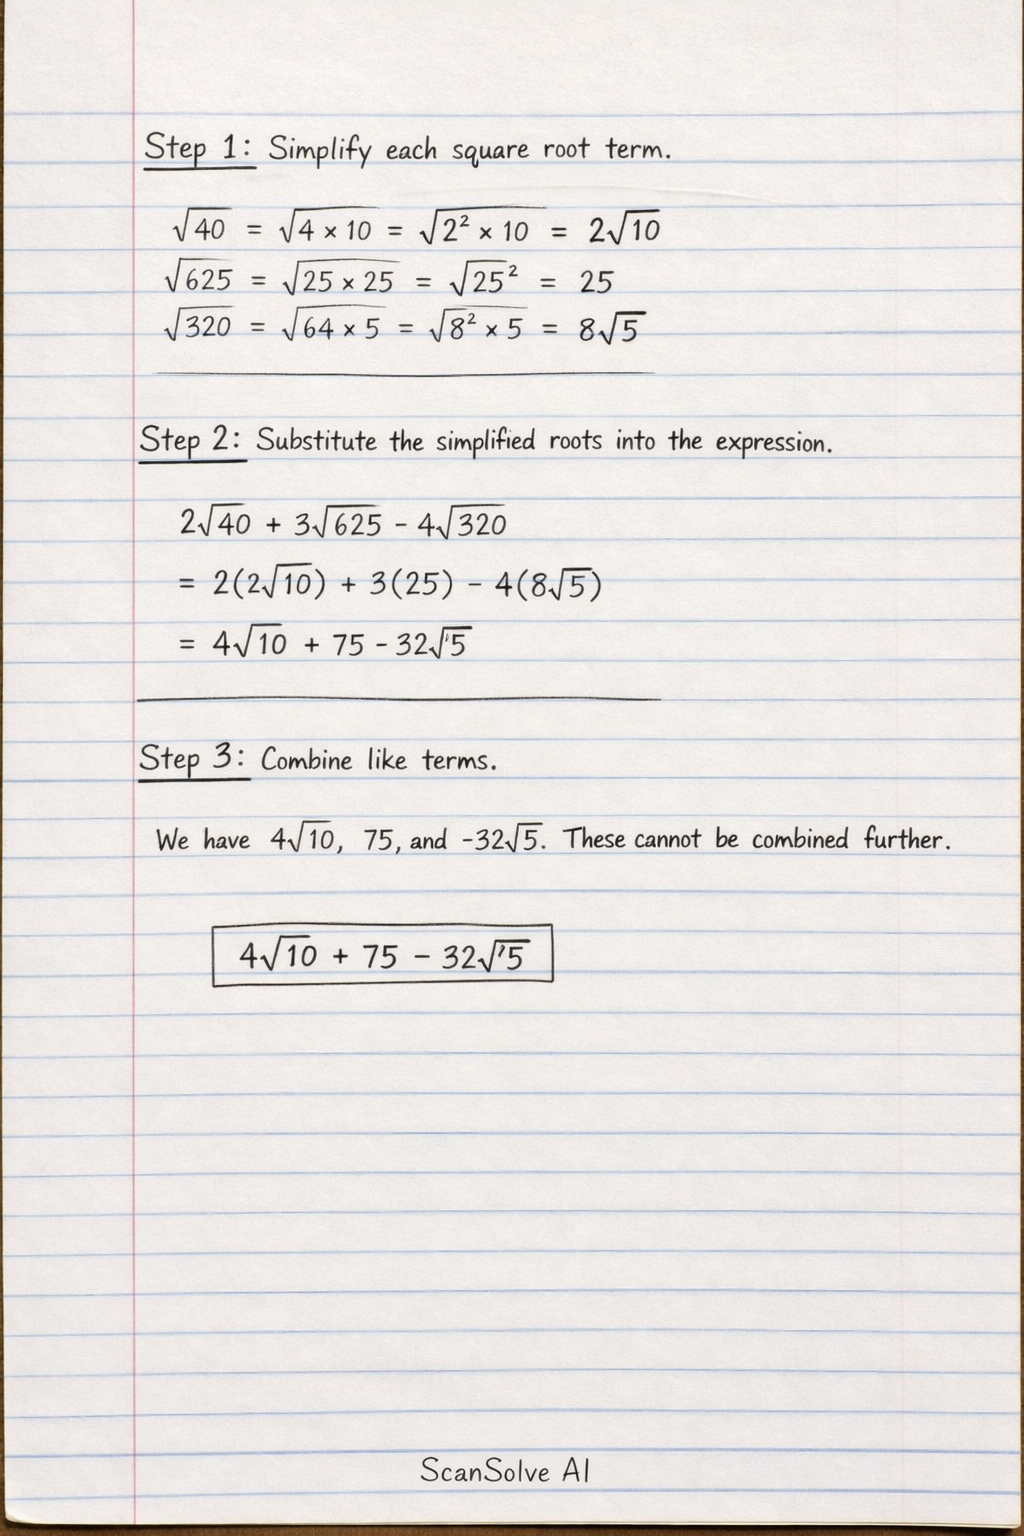 Step 1: Simplify each square root term.
√40 = √4 × 10 = √2² × 10 = 2√10
√625 = √25 × 25 = √25² = 25
√320 = √64 × 5 = √8² × 5 = 8√5
Step 2: Substitute the simplified roots into the expression.
2√40 + 3√625 − 4√320
= 2(2√10) + 3(25) − 4(8√5)
= 4√10 + 75 - 32√5
Step 3: Combine like terms.
We have 4√10, 75, and -32√5. These cannot be combined further.
4√10 + 75 − 32√5
ScanSolve AI